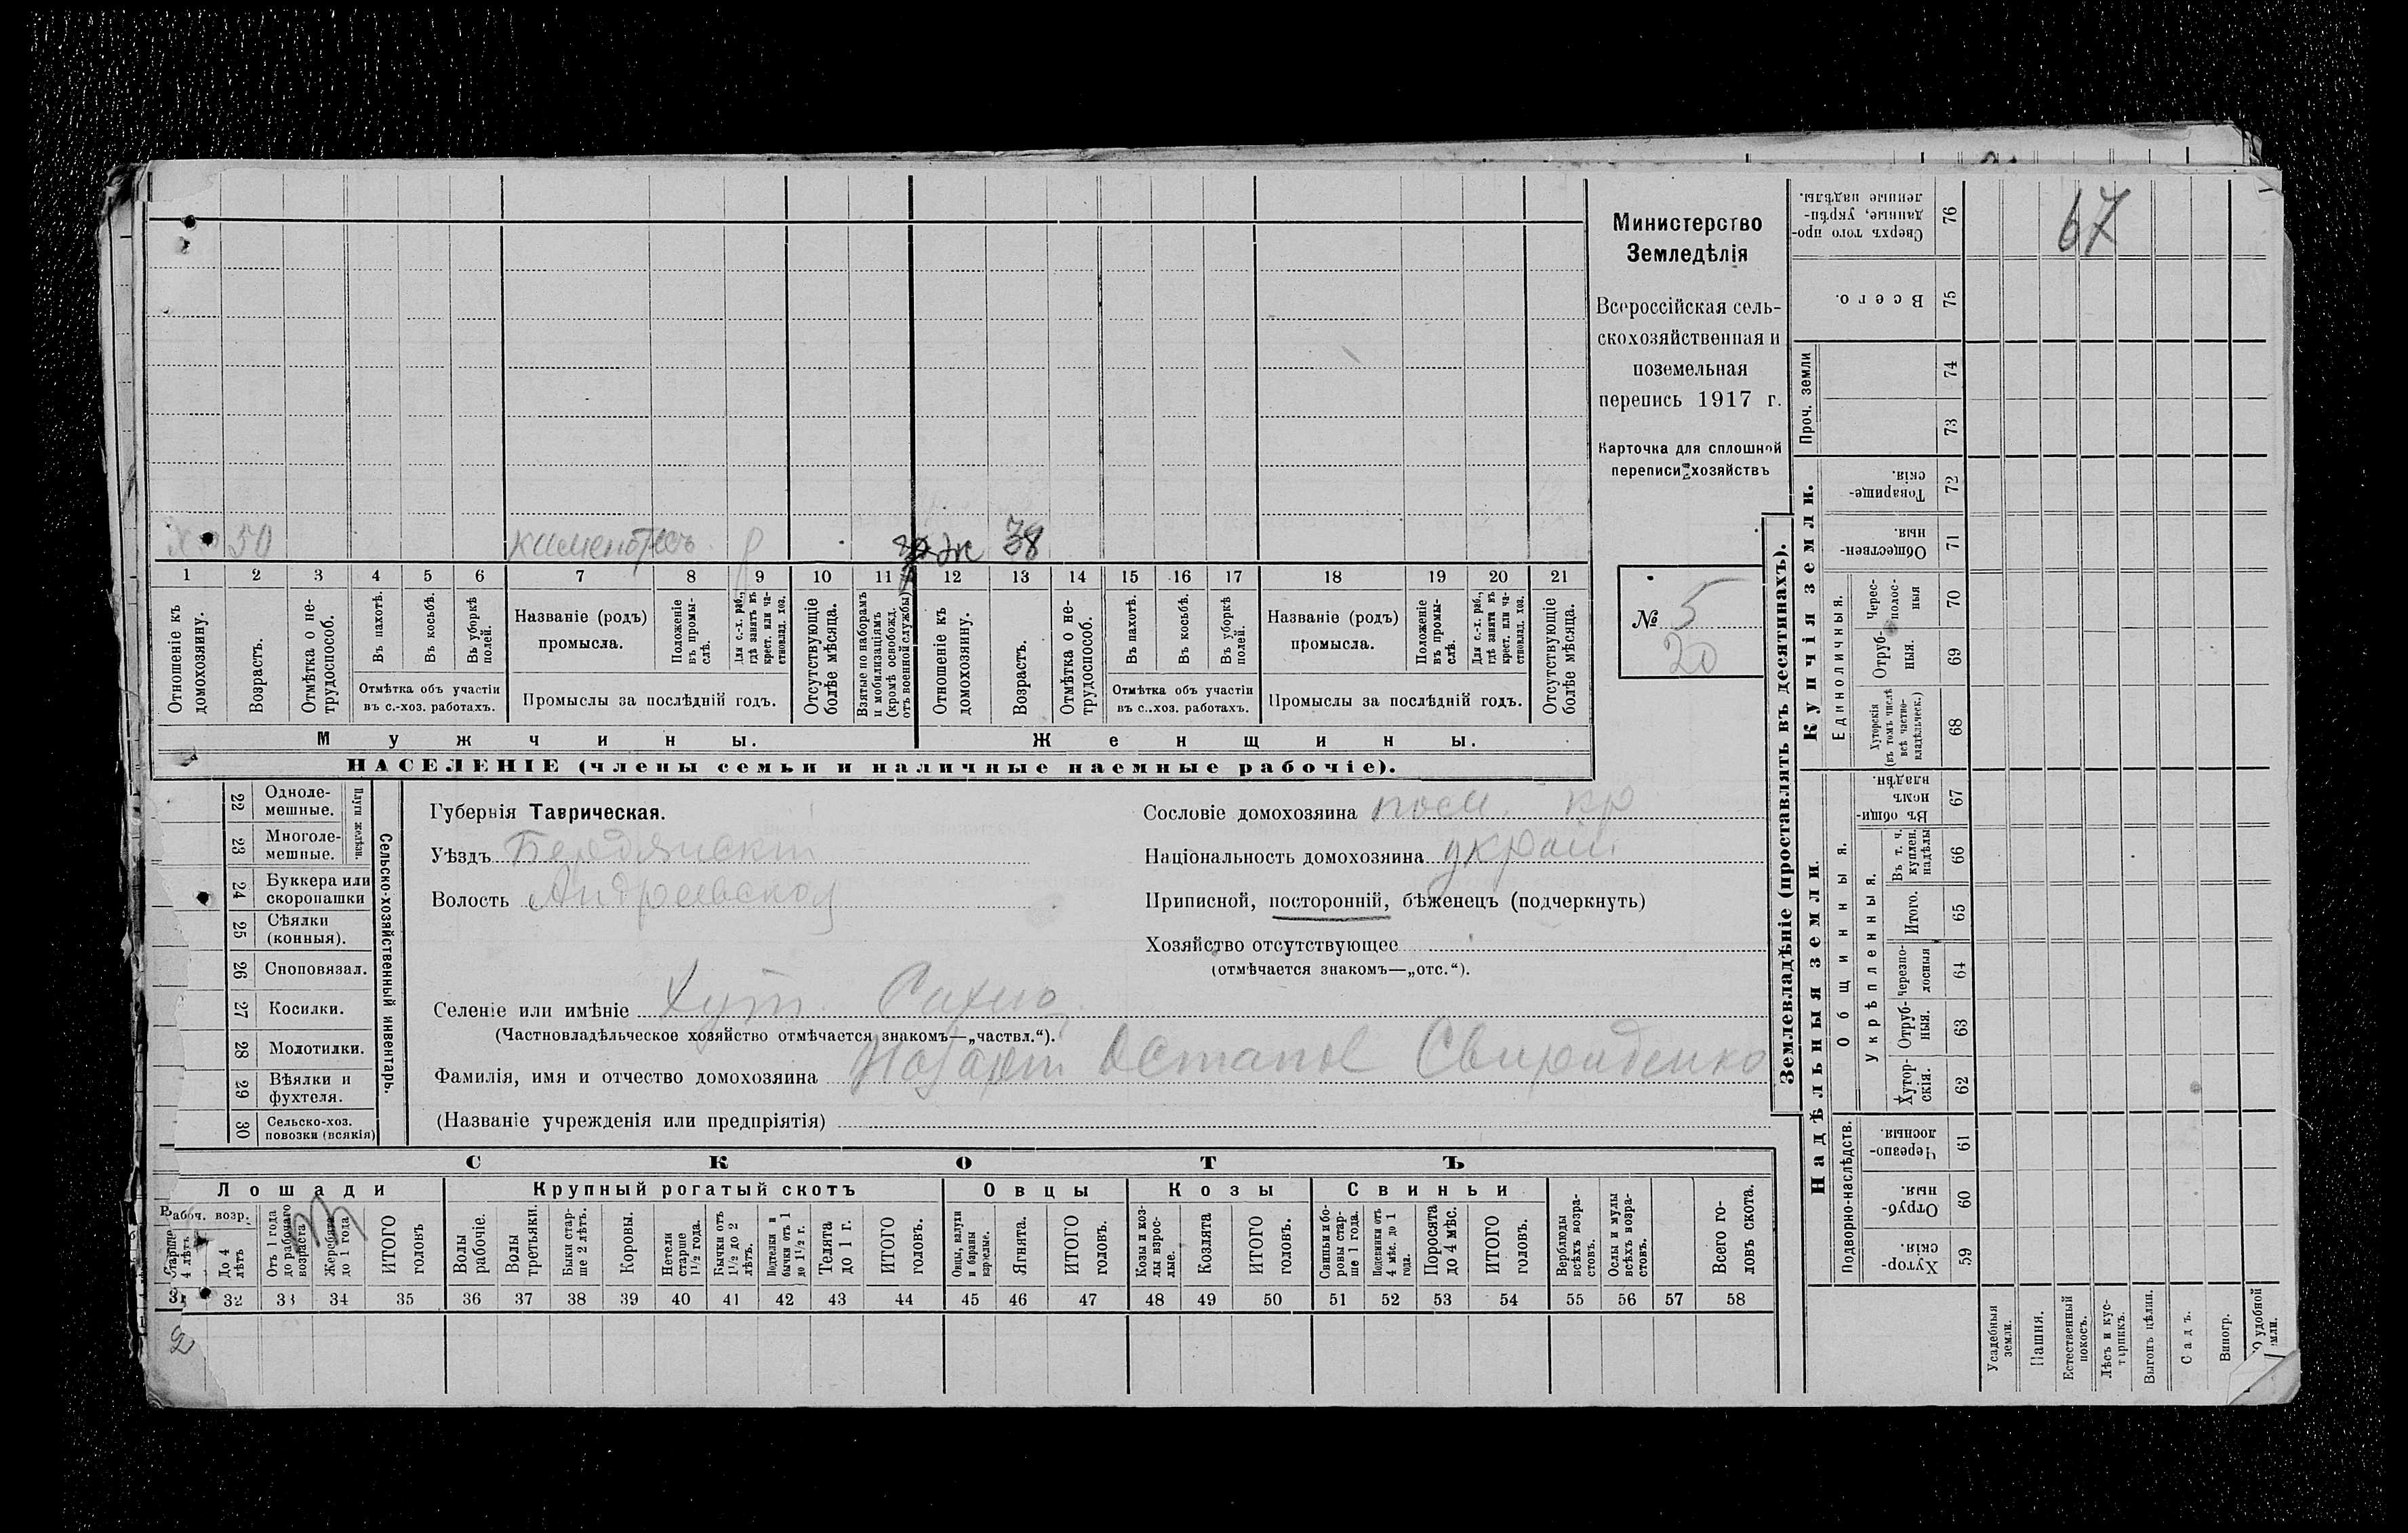 67
Министерство
Земледѣлія
Всероссійская сель-
скохозяйственная и
поземельная
перепись 1917 г.
Карточка для сплошной
переписи хозяйствъ
№ 5
20
50
38
1 2 3 4 5 6 7 8 9 10 11 12 13 14 15 16 17 18 19 20 21
Отношеніе къ домохозяину.
Возрастъ.
Отмѣтка о не-трудоспособ.
Въ пахотѣ.
Въ косьбѣ.
Въ уборкѣ полей.
Отмѣтка объ участіи
въ с.-хоз. работахъ.
Названіе (родъ)
промысла.
Положеніе въ промы-слѣ.
Для с.-х. раб., гдѣ занятъ въ крест. или ча-стновлад. хоз.
Промыслы за послѣдній годъ.
Отсутствующіе болѣе мѣсяца.
Взятые по наборамъ и мобилизаціямъ (кромѣ освобожд. отъ военной службы)
Отношеніе къ домохозяину.
Возрастъ.
Отмѣтка о не-трудоспособ.
Въ пахотѣ.
Въ косьбѣ.
Въ уборкѣ полей.
Отмѣтка объ участіи
въ с.-хоз. работахъ.
Названіе (родъ)
промысла.
Положеніе въ промы-слѣ.
Для с.-х. раб., гдѣ занята въ крест. или ча-стновлад. хоз.
Промыслы за послѣдній годъ.
Отсутствующіе болѣе мѣсяца.
Мужчины. Женщины.
НАСЕЛЕНІЕ (члены семьи и наличные наемные рабочіе).
Сельско-хозяйственный инвентарь.
Плуги желѣзн.
22 Одноле-мешные.
23 Многоле-мешные.
24 Буккера или скоропашки
25 Сѣялки (конныя).
26 Сноповязал.
27 Косилки.
28 Молотилки.
29 Вѣялки и фухтеля.
30 Сельско-хоз. повозки (всякія)
Губернія Таврическая.
Уѣздъ Бердянскій
Волость Андреевской
Селеніе или имѣніе Хут.
(Частновладѣльческое хозяйство отмѣчается знакомъ—„частвл.“).
Фамилія, имя и отчество домохозяина Остапов Свириденко
(Названіе учрежденія или предпріятія)
Сословіе домохозяина пос. кр
Національность домохозяина украин
Приписной, посторонній, бѣженецъ (подчеркнуть)
Хозяйство отсутствующее
(отмѣчается знакомъ—„отс.“).
СКОТЪ
Лошади Крупный рогатый скотъ Овцы Козы Свиньи
Рабоч. возр.
Старше 4 лѣтъ
До 4 лѣтъ
Отъ 1 года до рабочаго возраста
Жеребята до 1 года
ИТОГО головъ
Волы рабочіе.
Волы третьяки.
Быки стар-ше 2 лѣтъ.
Коровы.
Нетели старше 1½ года.
Бычки отъ 1½ до 2 лѣтъ.
Подтелки и бычки отъ 1 до 1½ г.
Телята до 1 г.
ИТОГО головъ.
Овцы, валухи и бараны взрослые.
Ягнята.
ИТОГО головъ.
Козы и коз-лы взрос-лые.
Козлята
ИТОГО головъ.
Свиньи и бо-ровы стар-ше 1 года.
Подсвинки отъ 4 мѣс. до 1 года.
Поросята до 4 мѣс.
ИТОГО головъ.
Верблюды всѣхъ возра-стовъ.
Ослы и мулы всѣхъ возра-стовъ.
Всего го-ловъ скота.
31 32 33 34 35 36 37 38 39 40 41 42 43 44 45 46 47 48 49 50 51 52 53 54 55 56 57 58
2
Землевладѣніе (проставлять въ десятинахъ).
Купчія земли.
Надѣльныя земли.
Сверхъ того про-данные, укрѣп-ленные надѣлы. 76
Всего. 75
Проч. земли
74
73
Товарище-скія. 72
Обществен-ныя. 71
Единоличныя.
Черес-полос-ныя 70
Отруб-ныя. 69
Хуторскія (въ томъ числѣ всѣ частно-владѣльческ.) 68
Общинныя.
Въ общин-номъ владѣн. 67
Укрѣпленныя.
Въ т. ч. куплен. надѣлы 66
Итого. 65
Черезпо-лосныя 64
Отруб-ныя. 63
Хутор-скія. 62
Подворно-наслѣдств.
Черезпо-лосныя. 61
Отруб-ныя. 60
Хутор-скія. 59
Усадебныя земли.
Пашня.
Естественный покосъ.
Лѣсъ и кус-тарникъ.
Выгонъ цѣлин.
Садъ.
Виногр.
удобной